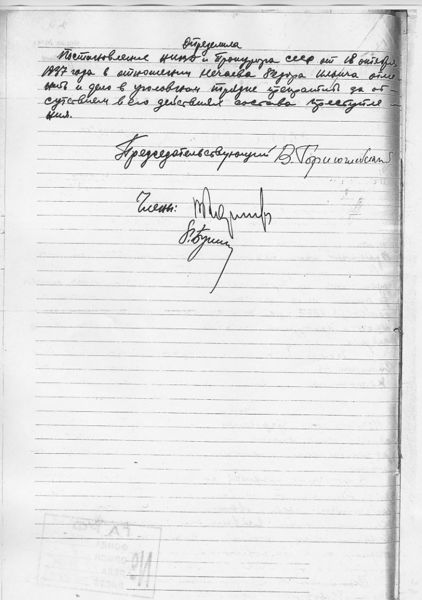 Определила
Постановление НКВД и Прокурора СССР от 18 октября
1937 года в отношении Нечаева Федора Ильича отме
нить и дело в уголовном порядке прекратить за от-
сутствием в его действиях состава преступле-
ния.
Председательствующий
Члены: